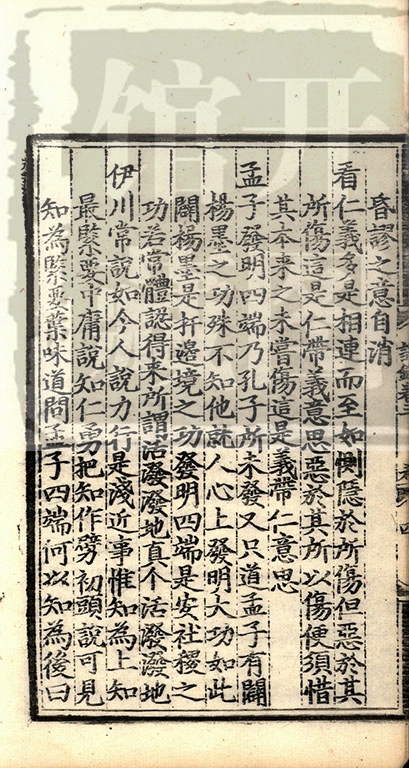 昏謬之意自消
看仁義多是相連而至如惻隱於所傷但惡於其
所傷這是仁帶義意思惡於其所以傷便須惜
其本來之未嘗傷這是義帶仁意思
孟子發明四端乃孔子所未發又只道孟子有闢
楊墨之功殊不知他就人心上發明大功如此
闢楊墨是扞邊境之功發明四端是安社稷之
功若常體認得來所謂活潑潑地真个活潑潑地
伊川常說如今人說力行是淺近事惟知為上知
最緊要中庸說知仁勇把知作劈初頭說可見
知為緊要葉味道問孟子四端何以知為後曰
开
馆